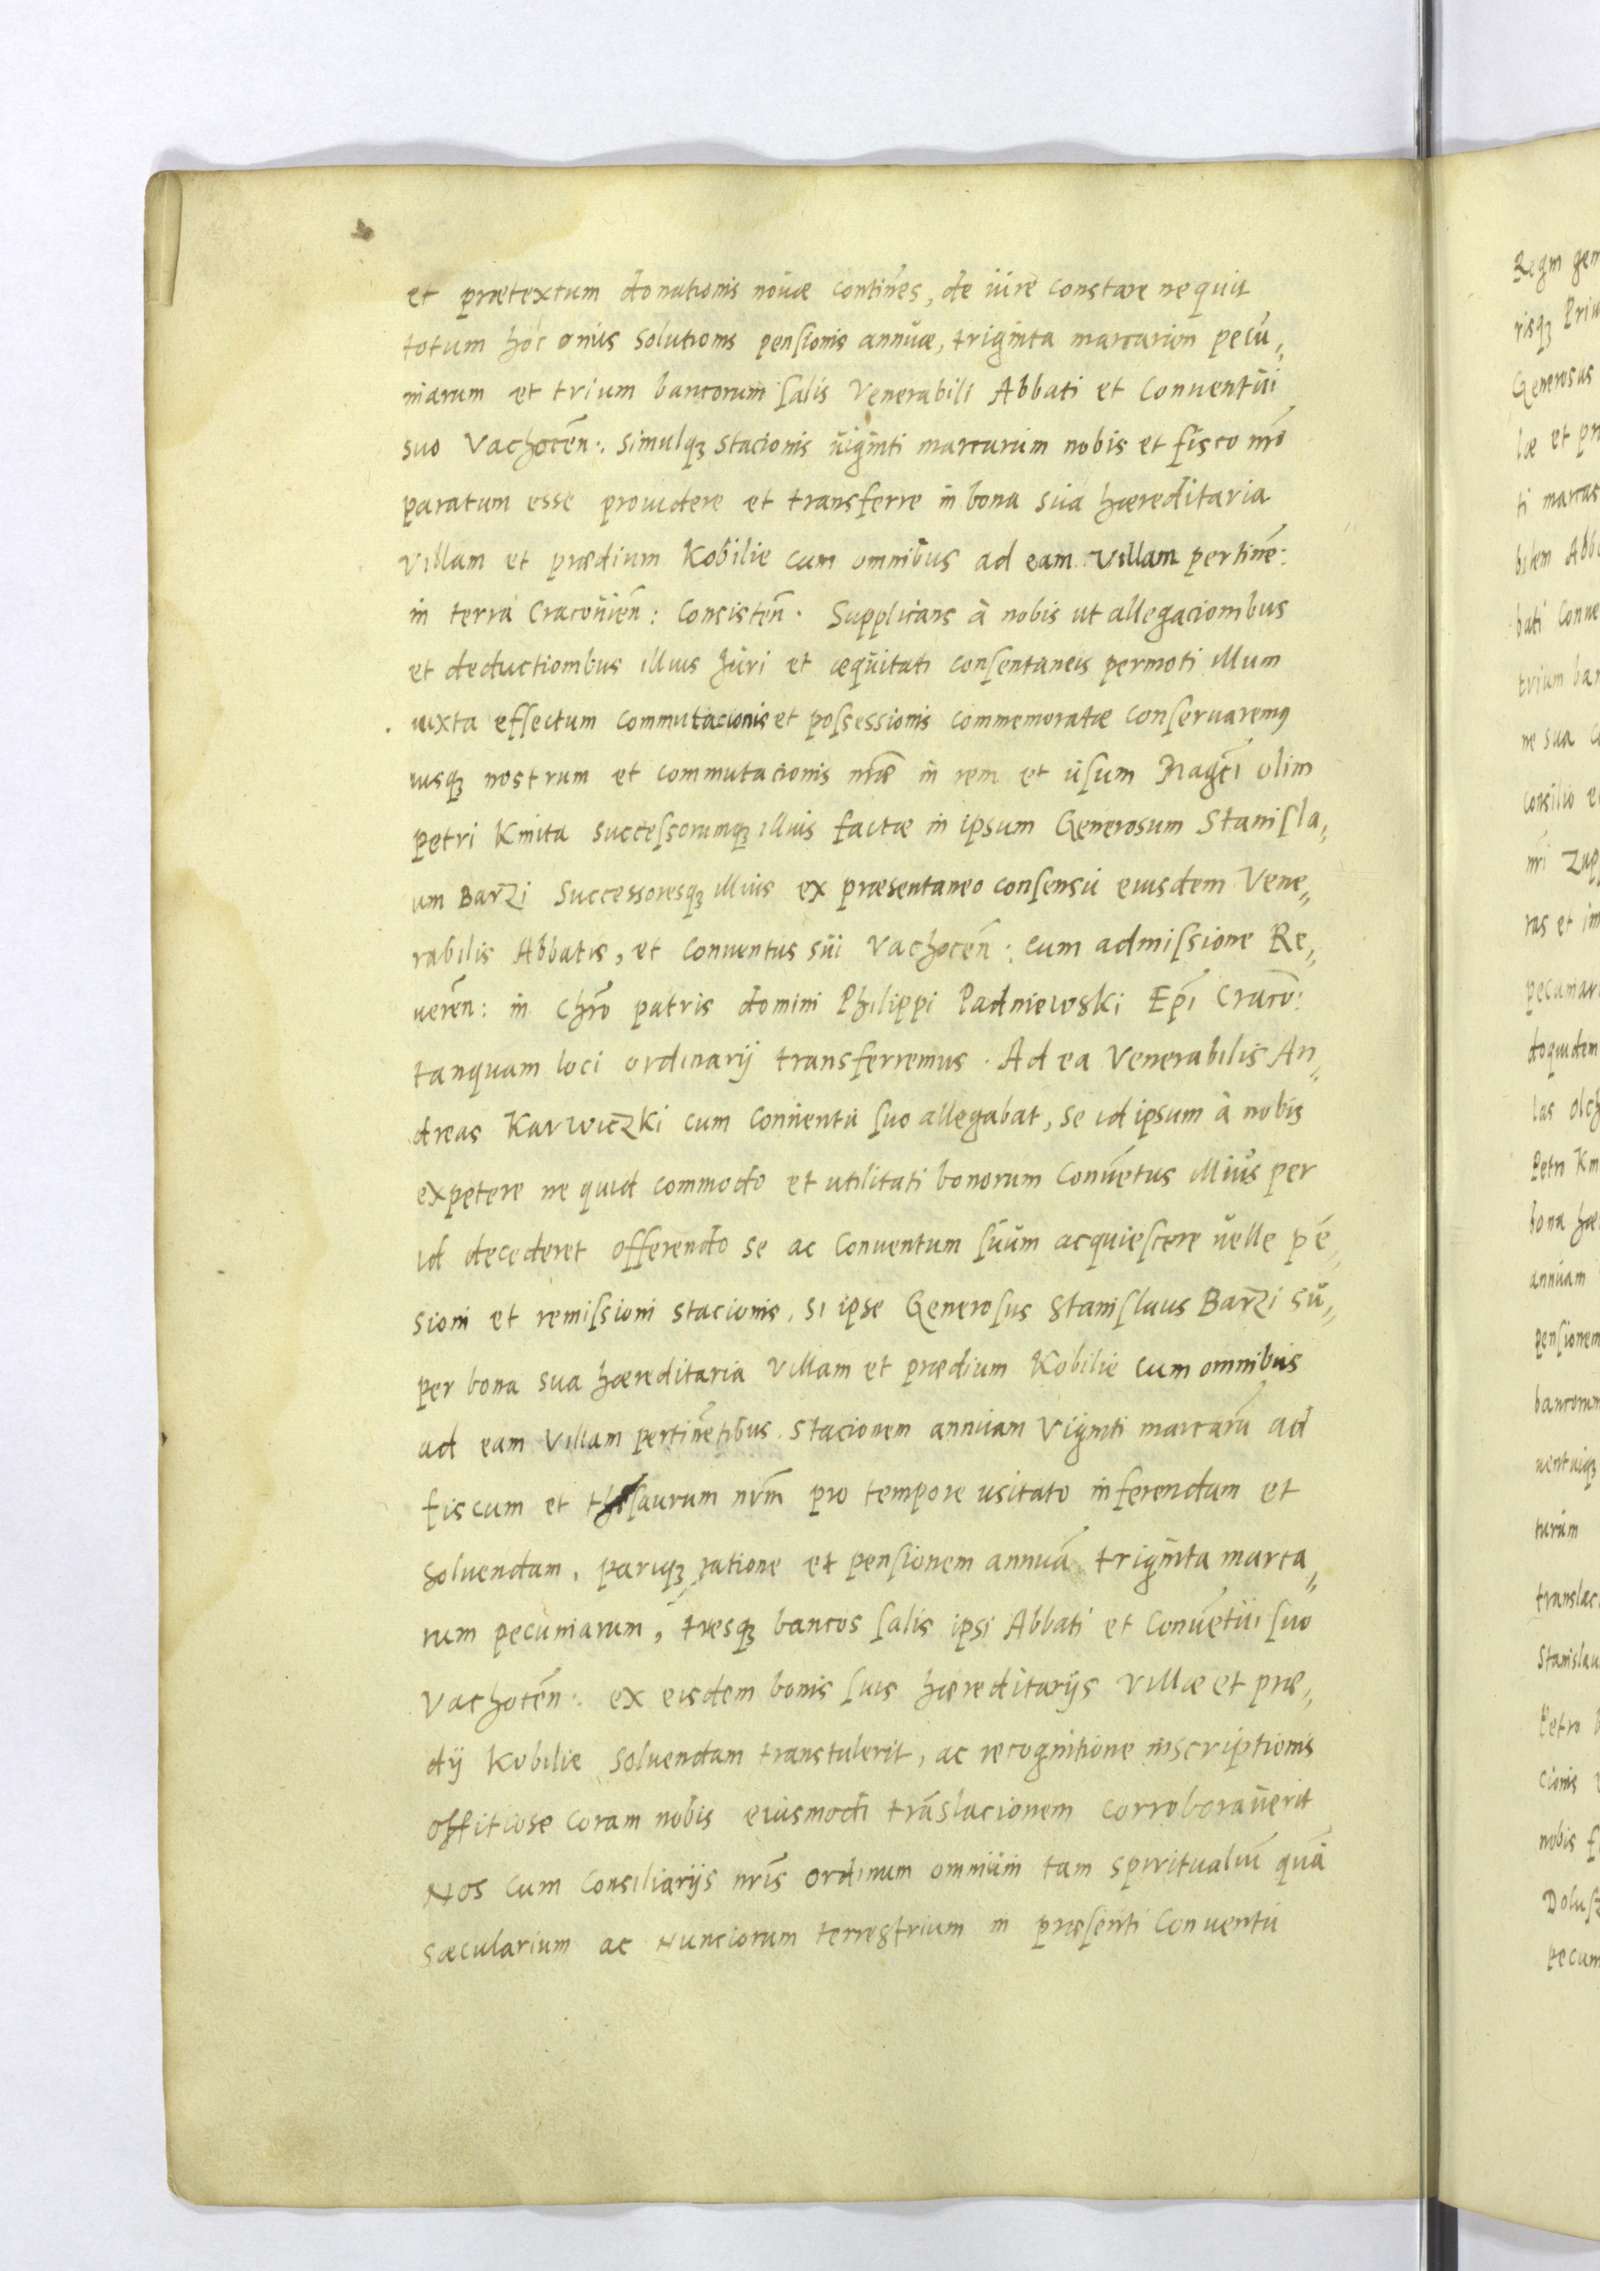 et prætextum donationis novæ continẽs, de iure constare nequit
totum hoc onus solutionis pensionis annuæ, triginta marcarum pecu„
niarum et trium bancorum salis Venerabili Abbati et Conventui
suo Vachocẽn: simulqꝫ stacionis viginti marcarum nobis et fisco nr̃o
paratum esse providere et transferre in bona sua hæreditaria
villam et prædium Kobilie cum omnibus ad eam villam pertinẽ:
in terra Cracoviẽn: Consistẽn. Supplicans à nobis ut allegacionibus
et deductionibus illius Juri et æquitati consentaneis permoti illum
iuxta effectum commutacionis et possessionis commemoratæ conservaremꝰ
iusqꝫ nostrum et commutacionis nr̃æ in rem et usum Magc̃i olim
Petri Kmita successorumqꝫ illius factæ in ipsum Generosum Stanisla„
um Barzi Successoresqꝫ illius ex præsentaneo consensu eiusdem Vene„
rabilis Abbatis, et Conventus sui Vachocẽn: cum admissione Re„
verẽn: in Chr̃o patris domini Philippi Padniewski Ep̃i Craco:
tanquam loci ordinarij transferremus. Ad ea Venerabilis An„
dreas Karwiczki cum Conventu suo allegabat, se id ipsum à nobis
expetere ne quid commodo et utilitati bonorum Convẽtus illius per
id decederet offerendo se ac Conventum suum acquiescere velle pẽ„
sioni et remissioni stacionis, si ipse Generosus Stanislaus Barzi su„
per bona sua hæreditaria Villam et prædium Kobilie cum omnibus
ad eam Villam pertinẽtibus stacionem annuam Viginti marcarũ ad
fiscum et thesaurum nr̃m pro tempore usitato inferendam et
solvendam, pariqꝫ ratione et pensionem annuã triginta marca„
rum pecuniarum, tresqꝫ bancos salis ipsi Abbati et Convẽtui suo
Vachocẽn: ex eisdem bonis suis hæreditarijs Villæ et præ„
dij Kobilie solvendam transtulerit, ac recognitione inscriptionis
officiose coram nobis eiusmodi trãslacionem corroboraverit
Nos cum Consiliarijs nr̃is ordinum omnium tam spiritualiũ quã
sæcularium ac Nunciorum terrestrium in præsenti Conventu